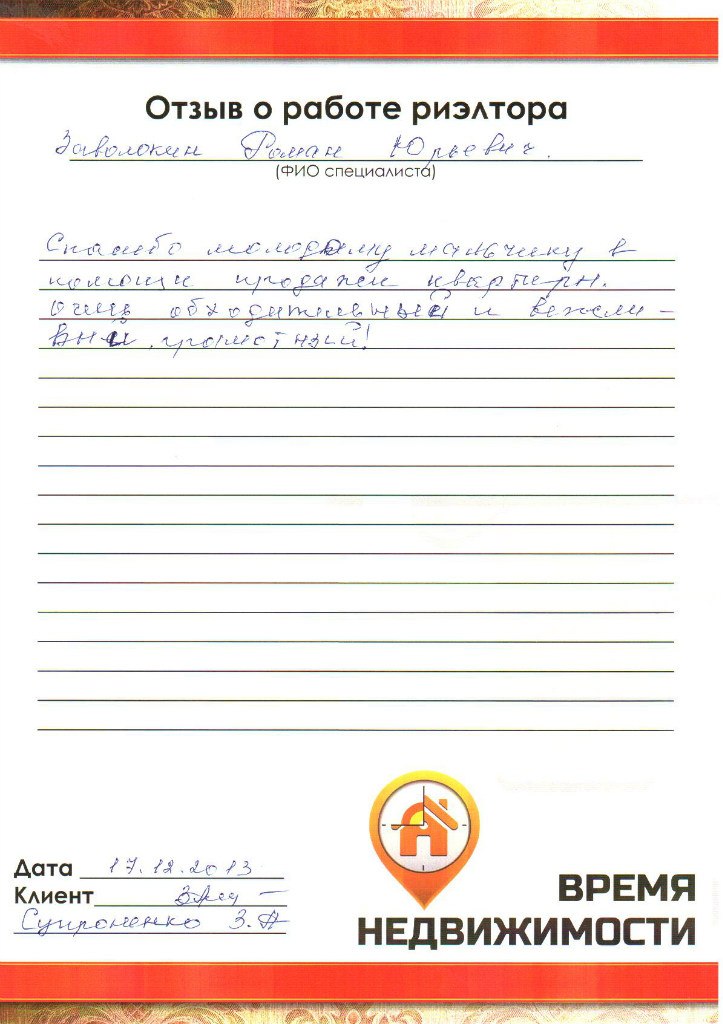 Отзыв о работе риэлтора
Заволокин Роман Юрьевич.
(ФИО специалиста)
Спасибо молодому мальчику в
помощи продажи квартиры.
очень обходительный и вежли-
вый, грамотный!
Дата 17.12.2013
Клиент
Супроненко З.А
ВРЕМЯ
НЕДВИЖИМОСТИ